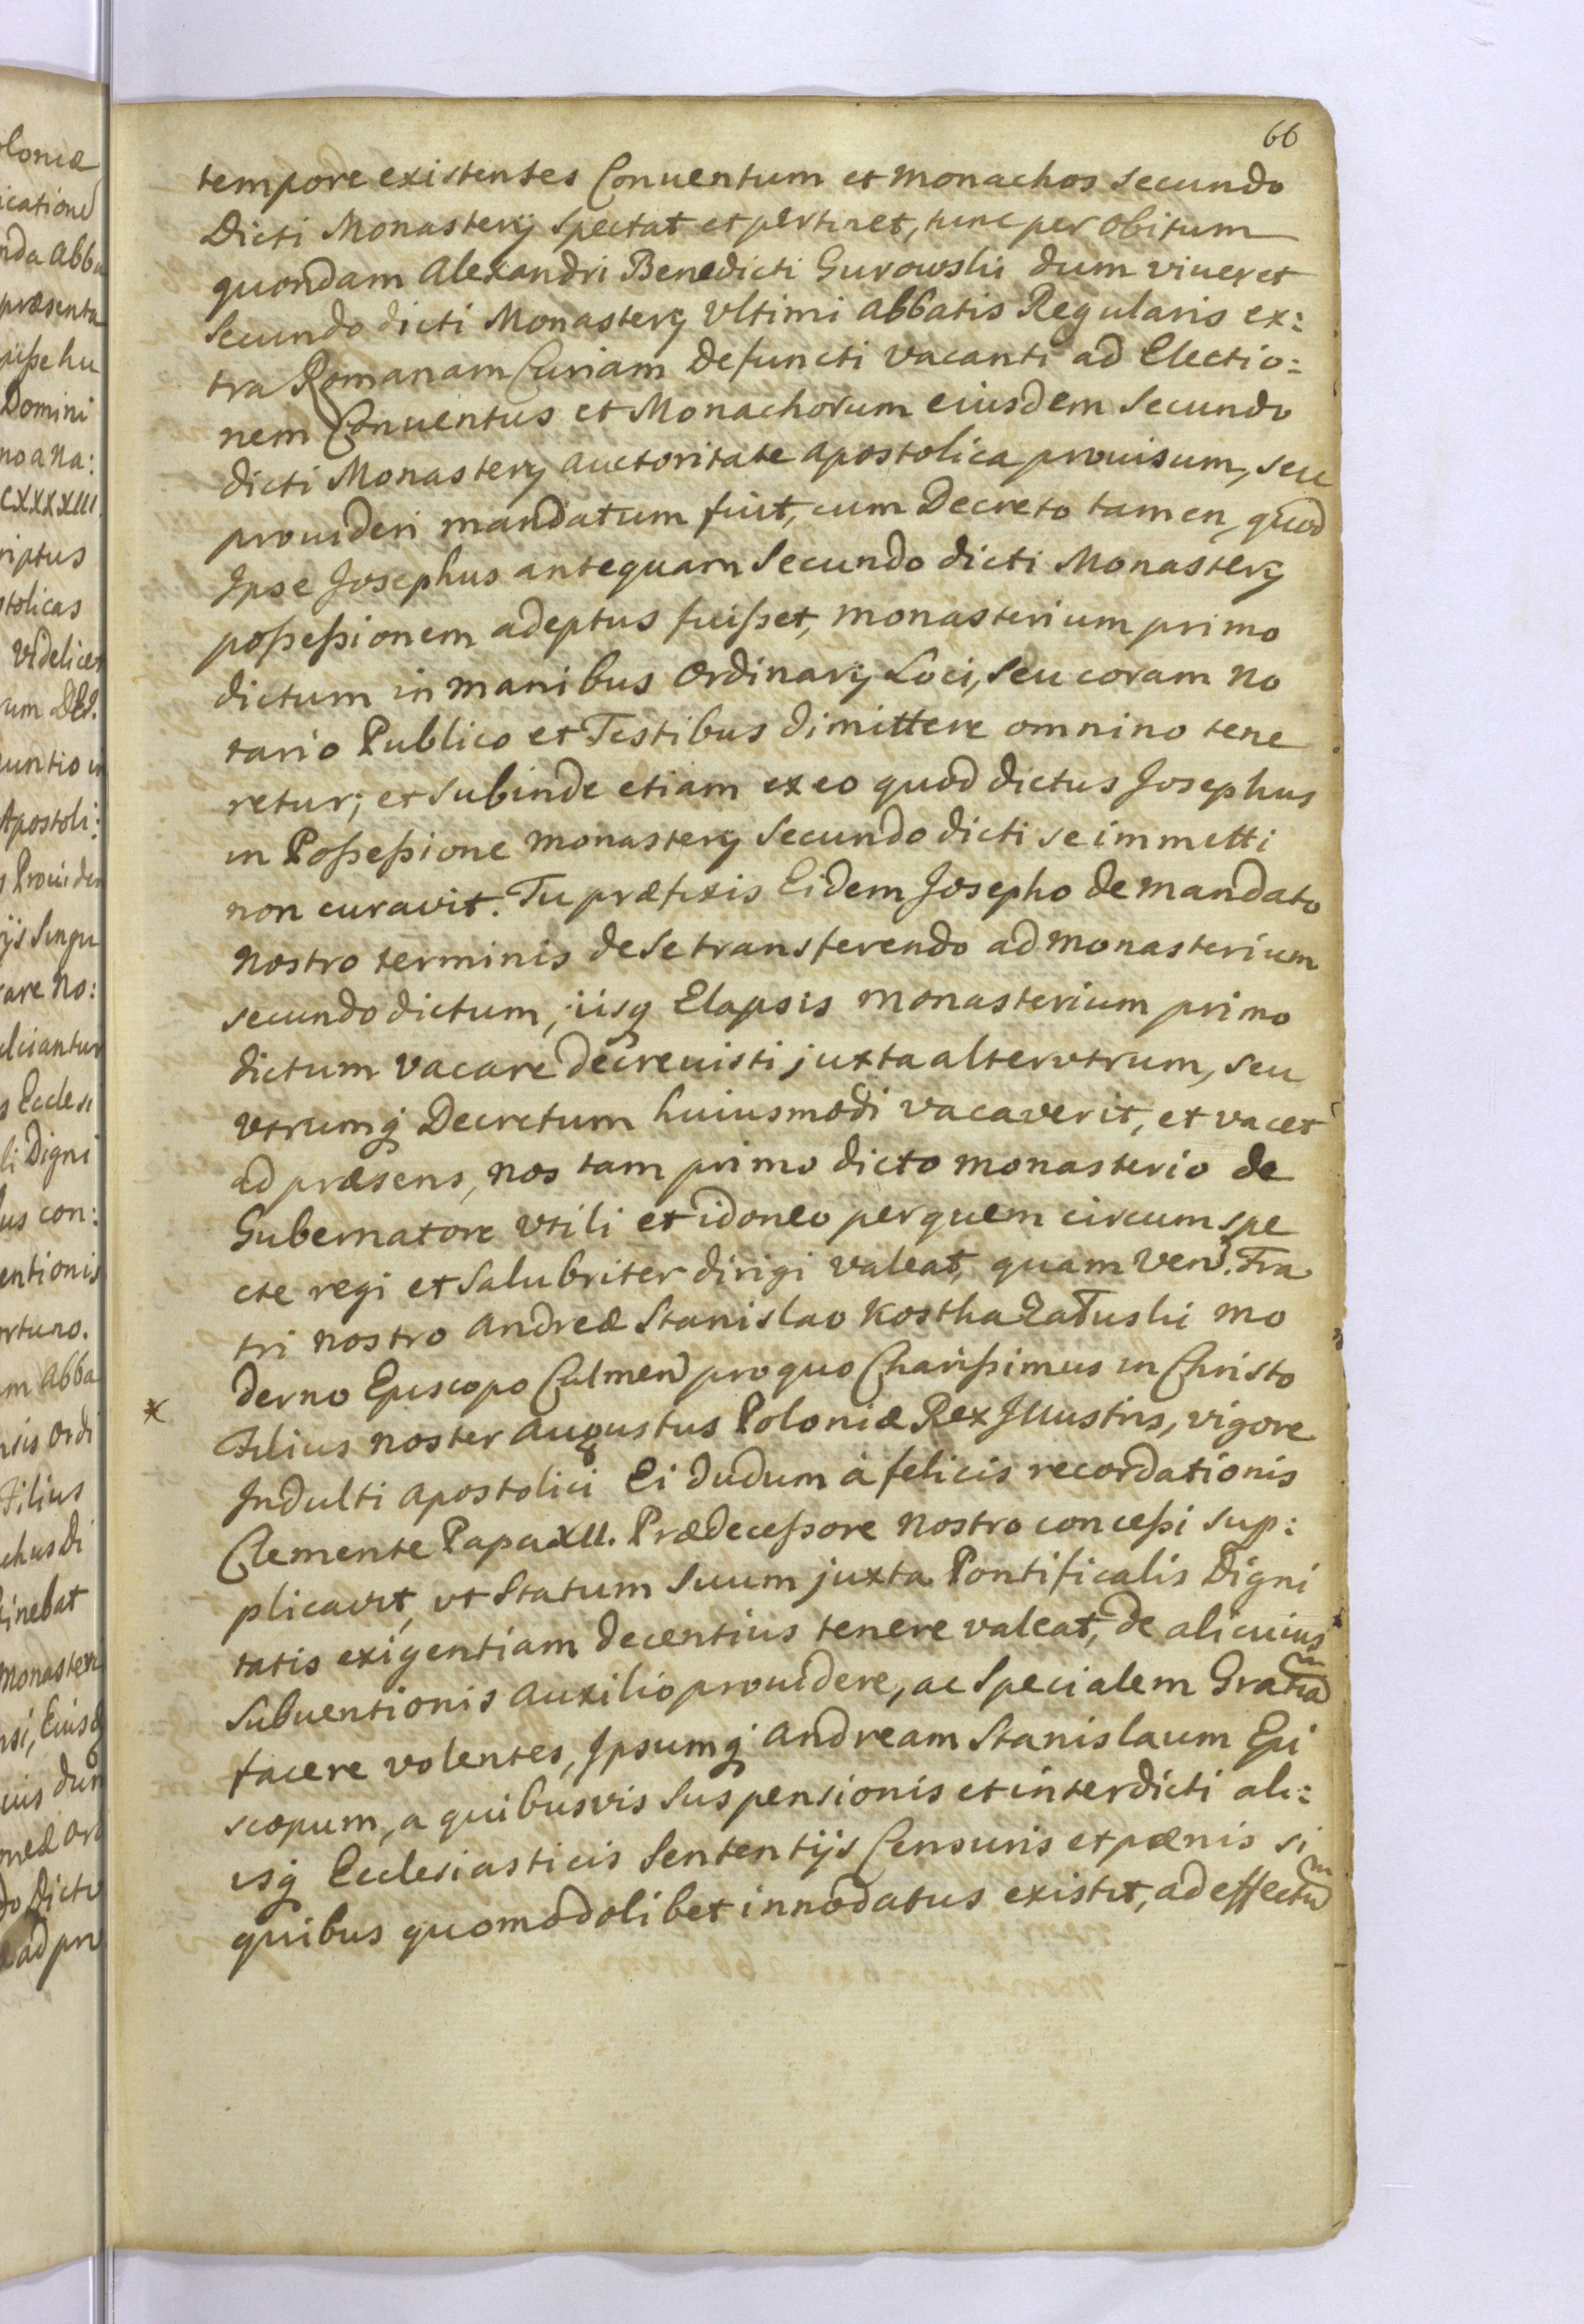 66
tempore existentes Conuentum et Monachos Secundo
Dicti Monasterÿ Spectat et pertinet, tunc per obitum
quondam Alexandri Benedicti Gurowski dum viueret
Secundo dicti Monasterÿ vltimi Abbatis Regularis ex:
tra Romanam Curiam defuncti vacanti ad Electio:
nem Conuentus et Monachorum eiusdem Secundo
dicti Monasterÿ auctoritate Apostolica prouisum, seu
prouideri mandatum fuit, cum Decreto tamen, quod
Ipse Josephus antequam Secundo dicti Monasterÿ
poßeßionem adeptus fuißet, monasterium primo
dictum in manibus Ordinarÿ Loci, seu coram No
tario Publico et Testibus dimittere omnino tene
retur; et subinde etiam ex eo quod dictus Josephus
in Poßeßione monasterÿ Secundo dicti se immitti
non curavit. Tu præfixis Eidem Josepho de mandato
nostro terminis de se transferendo ad monasterium
secundo dictum, iisq Elapsis monasterium primo
dictum vacare decreuisti, juxta alterutrum, seu
vtrumq Decretum huiusmodi vacaverit, et vacet
ad præsens, nos tam primo dicto monasterio de
Gubernatore vtili et idoneo per quem circumspe
cte regi et Salubriter dirigi valeat, quam Ven. Fra
tri nostro Andreæ Stanislao Kostha Załuski mo
derno Episcopo Culmen pro quo Charißimus in Christo
* Filius noster Augustus Poloniæ Rex Illustris, vigore
Indulti Apostolici Ei dudum à felicis recordationis
Clemente Papa XII. Prædeceßore nostro conceßi sup:
plicavit, vt Statum Suum juxta Pontificalis Digni
tatis exigentiam decentius tenere valeat, de alicuius
Subuentionis auxilio prouidere, ac Specialem Gratia͠
facere volentes, Ipsumq Andream Stanislaum Epi
scopum, a quibusvis Suspensionis et interdicti ali:
isq Ecclesiasticis Sententÿs Censuris et pænis si
quibus quomodolibet innodatus existit, ad effectu͠